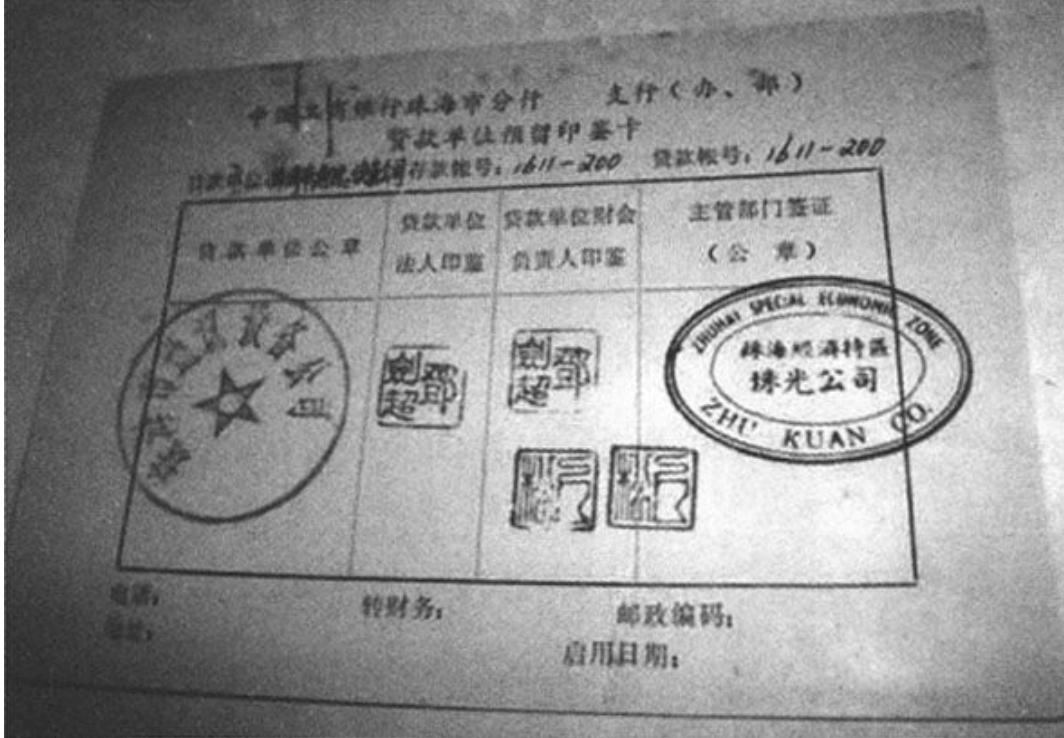 中国工商银行珠海市分行 支行(办、部)
贷款单位预留印鉴卡
贷款单位 存款帐号:1611-200 贷款帐号:1611-200
贷款单位公章
贷款单位
法人印鉴
贷款单位财会
负责人印鉴
主管部门签证
(公 章)
鄧劍超
鄧劍超
ZHUHAI SPECIAL ECONOMIC ZONE
珠海經濟特區
珠光公司
ZHU KUAN CO.
电话:
转财务:
邮政编码:
地址:
启用日期: